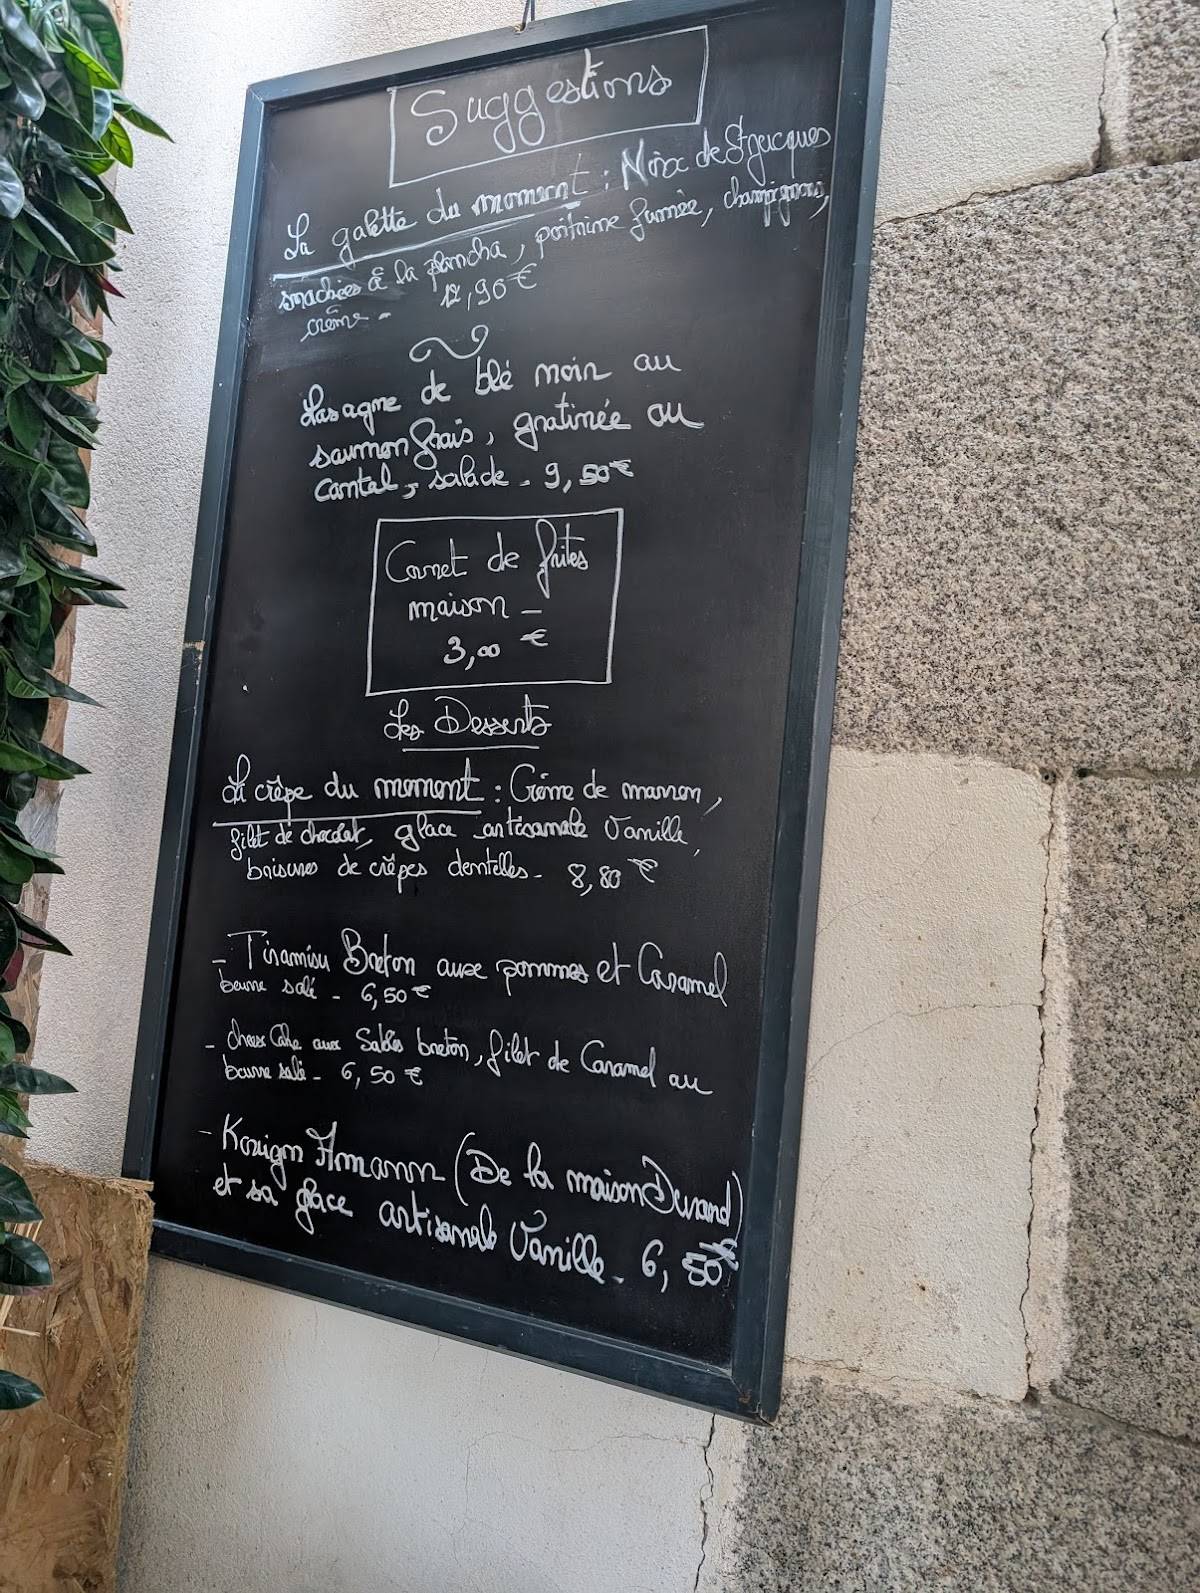 Suggestions
La galette du moment : Noix de St Jacques
snackées à la plancha, poitrine fumée, champignons,
crème - 12,90 €
Lasagne de blé noir au
saumon frais, gratinée au
Cantal, salade - 9,50 €
Cornet de frites
maison -
3,00 €
Les Desserts
La crêpe du moment : Crème de marron,
filet de chocolat, glace artisanale Vanille,
brisures de crêpes dentelles - 8,80 €
- Tiramisu Breton aux pommes et Caramel
beurre salé - 6,50 €
- Cheese Cake aux Sablés breton, filet de Caramel au
beurre salé - 6,50 €
- Kouign Amann (De la maison Durand)
et sa glace artisanale Vanille - 6,50 €